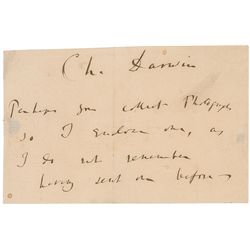 Ch. Darwin
Perhaps you collect Photographs
so I enclose one, as
I do not remember
having sent one before